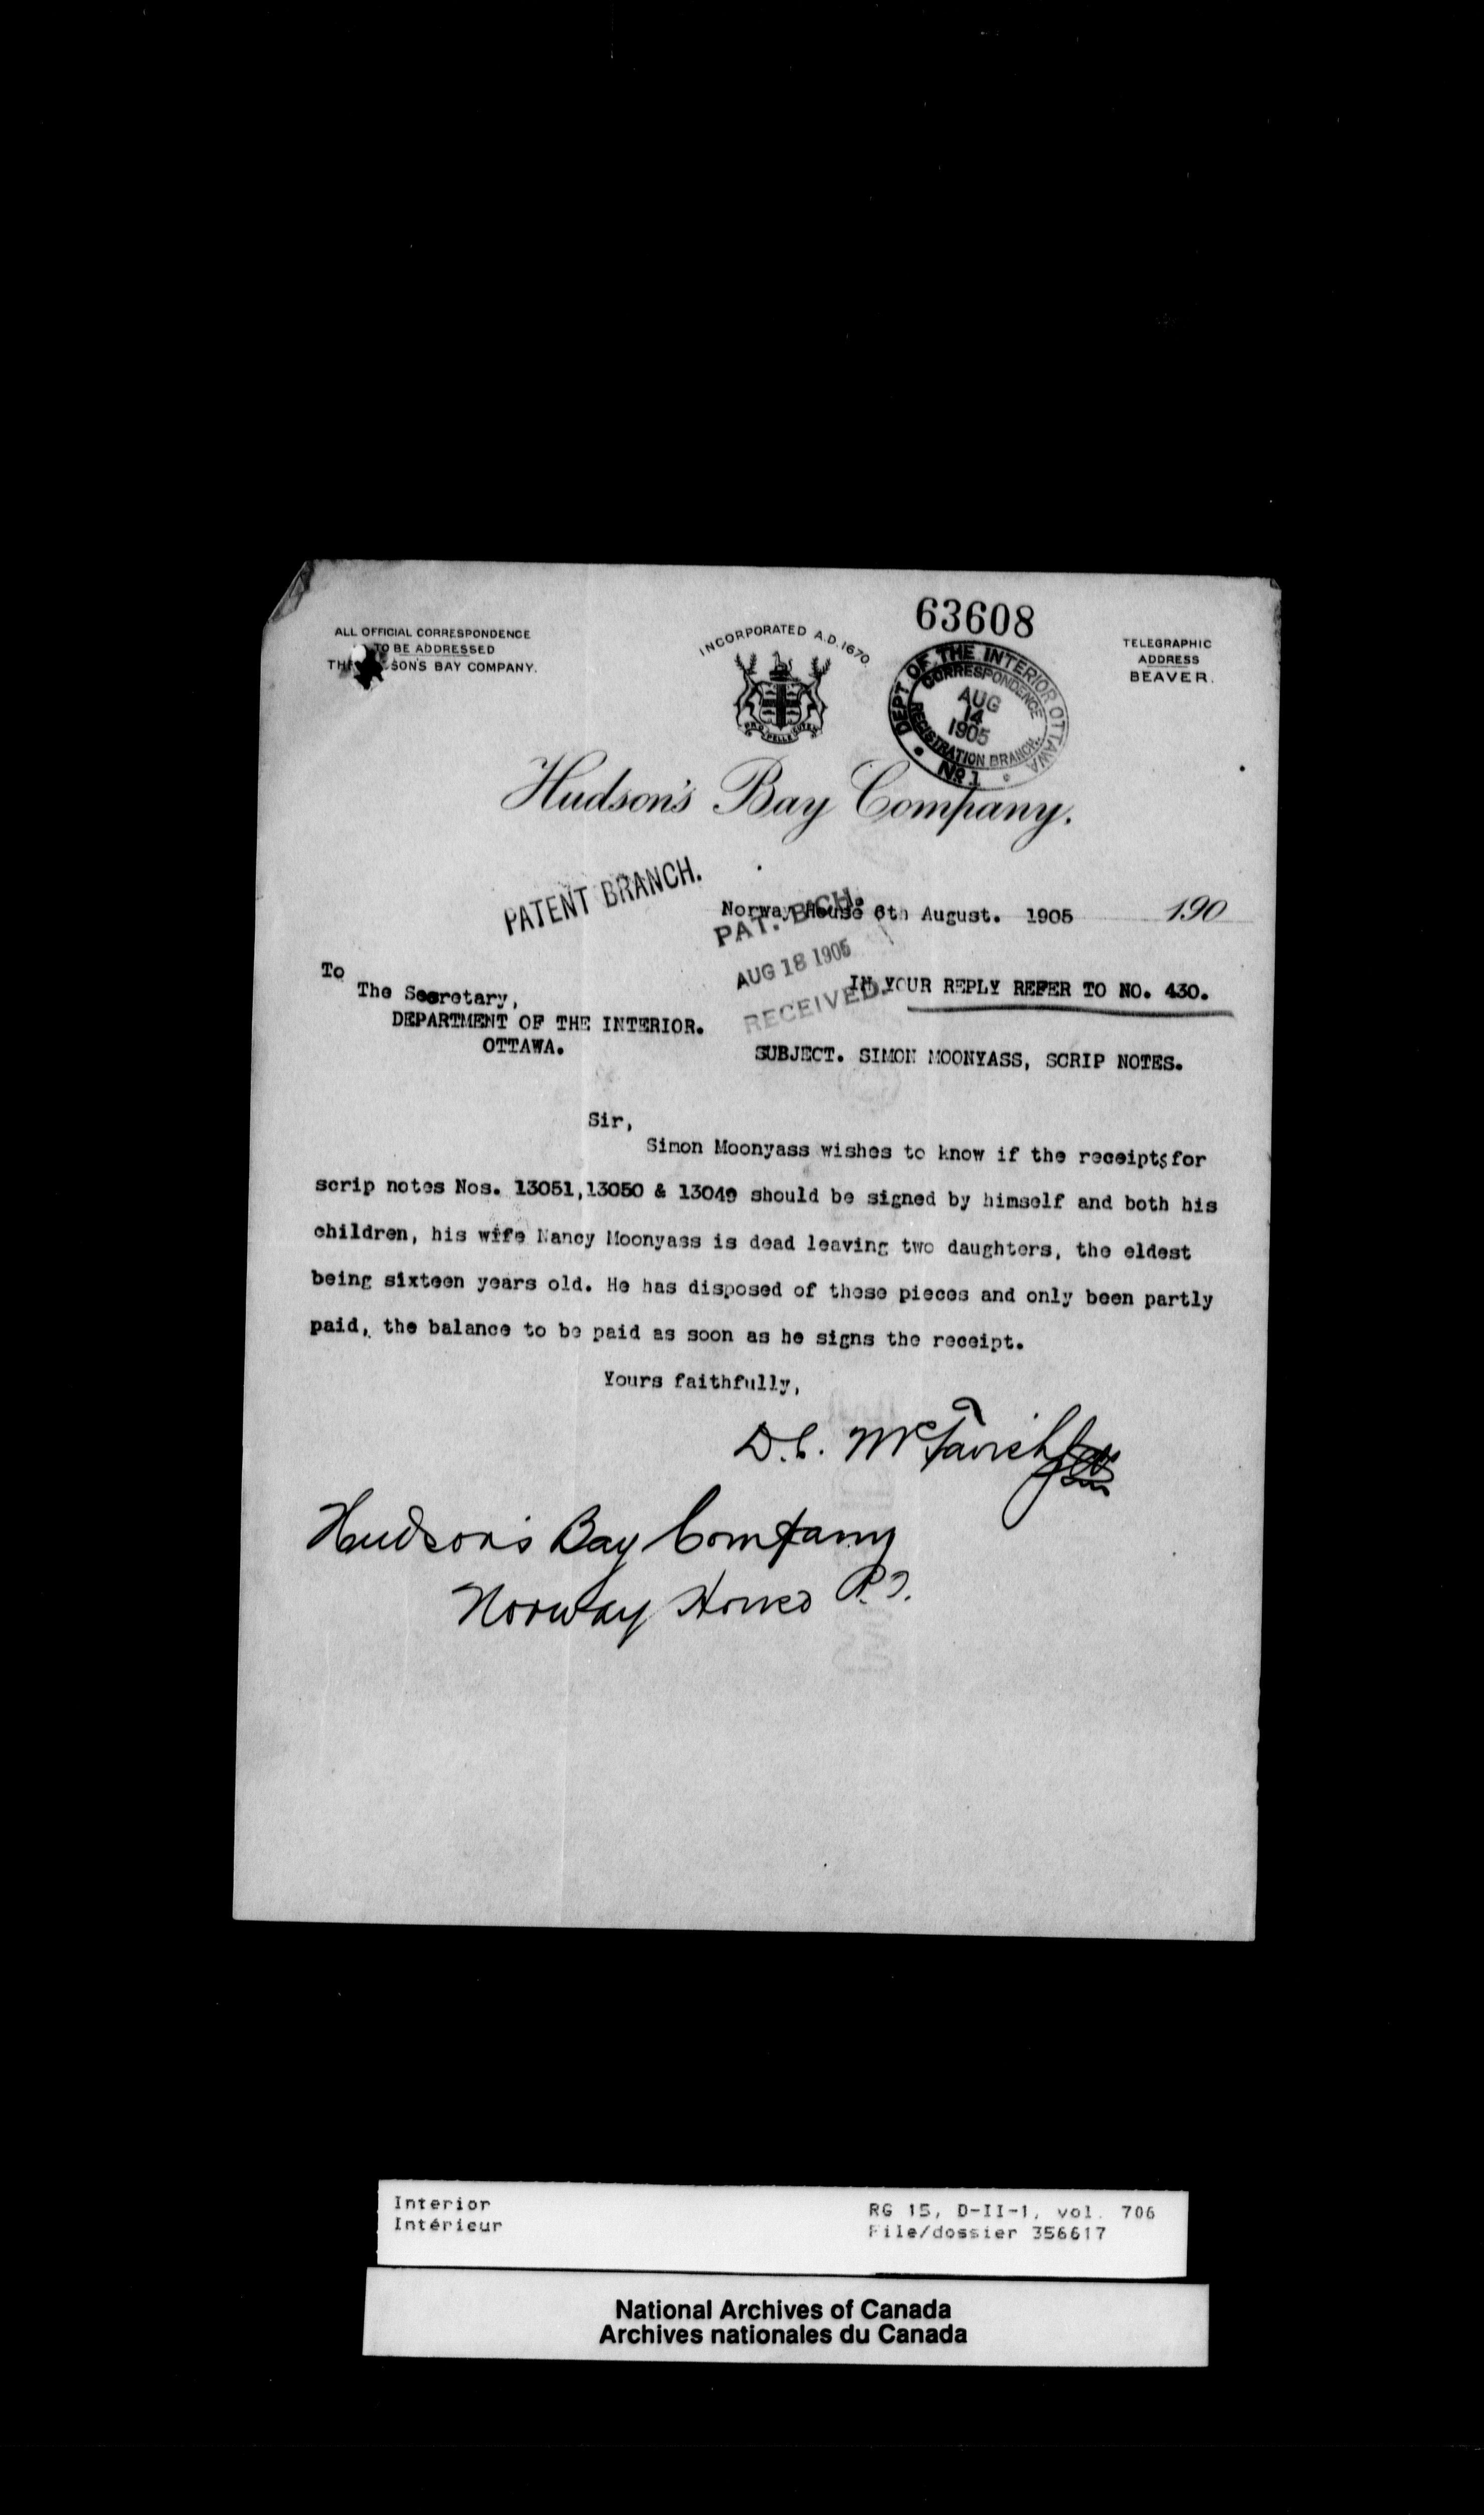 63608
ALL OFFICIAL CORRESPONDENCE
TO BE ADDRESSED
SON'S BAY COMPANY.
INCORPORATED A.D. 1670
TELEGRAPHIC
ADDRESS
BEAVER.
PRO PELLE CUTEM
DEPT OF THE INTERIOR OTTAWA
CORRESPONDENCE
AUG
14
1905
REGISTRATION BRANCH.
No 1
Hudson's Bay Company.
PATENT BRANCH.
Norway House 6th August. 1905 190
PAT. BCH.
AUG 18 1905
RECEIVED.
To
The Secretary,
DEPARTMENT OF THE INTERIOR.
OTTAWA.
IN YOUR REPLY REFER TO NO. 430.
SUBJECT. SIMON MOONYASS, SCRIP NOTES.
Sir,
Simon Moonyass wishes to know if the receipts for
scrip notes Nos. 13051,13050 & 13049 should be signed by himself and both his
children, his wife Nancy Moonyass is dead leaving two daughters, the eldest
being sixteen years old. He has disposed of these pieces and only been partly
paid, the balance to be paid as soon as he signs the receipt.
Yours faithfully,
D.C. McTavish
Hudson's Bay Company
Norway House
Interior
Intérieur
RG 15, D-II-1, vol. 706
File/dossier 356617
National Archives of Canada
Archives nationales du Canada